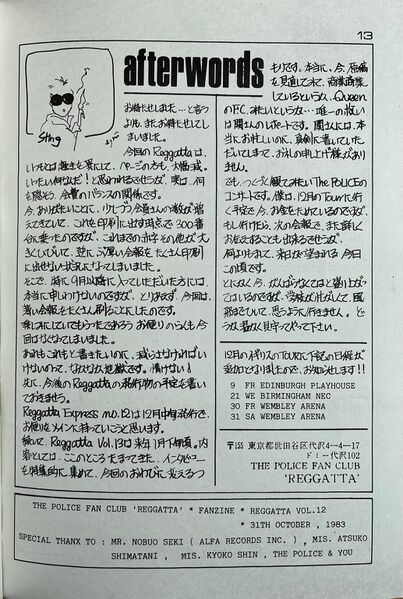 13
afterwords
Sting
お待たせしました…と言うよりも、またお待たせしてしまいました。
今回のReggattaは、
いつもとは趣を異にして、ページの方も、大幅減。
今、ありがたいことに、少しづつ会員さんの数が増
えてきていて、これを印刷に出す時点で300番
台に乗ったのですが、これまでの赤字その他が大
きくひびいて、逆に薄い会報をたくさん印刷
に出せない状況になってしまいました。
そこで、特に9月以降に入っていただいた方には、
本当に申しわけないのですが、とりあえず今回は、
薄い会報をたくさん刷ることにしたのです。
楽しみにしてもらってたであろうお便りのらんも今
回はなくなってしまいました。
あれもこれもと書きたいのに、減らさなければい
けないので、なかなか地獄です。情けない!
次に、今後のReggattaの発行物の予定を書い
ておきます。
Reggatta Express no.12は12月中旬発行で、
お便りをメインに持っていこうと思います。
続いて、Reggatta Vol.13は来年1月下旬頃。内
容としては、ここのところたまってきた、インタビュー
を特集的に集めて、今回のおわびに変えるつ
もりです。本当に、今、原稿
を見直してみて、
しているというか、Queen
のF.C.みたいというか…唯一の救い
は関さんのレポートです。関さんには、本
当にお忙しいのに、真剣に書いていた
だいてしまって、お礼の申し上げ様があり
ません。
でも、つくづく観てみたいThe POLICEの
コンサートです。僕は、12月のTourに行
く予定で今、お金をためているのですが、
もし行けたら、次の会報で、また詳しく
お伝えすることも出来るでしょうが、
何よりもまず、来日が望まれる今日
この頃です。
とにかく今、がんばらなくてはと盛り上が っ
てはいるのですが、学校が忙しくて、風
邪をひいて、思うように行きません。ど
うか温かく見守ってやって下さい。
12月のイギリスのTourに下記の日程が
追加となりましたので、お知らせします!!
9 FR EDINBURGH PLAYHOUSE
21 WE BIRMINGHAM NEC
30 FR WEMBLEY ARENA
31 SA WEMBLEY ARENA
〒155 東京都世田谷区代沢4-4-17
ドミー代沢102
THE POLICE FAN CLUB
'REGGATTA'
THE POLICE FAN CLUB 'REGGATTA' * FANZINE * REGGATTA VOL.12
* 31TH OCTOBER , 1983
SPECIAL THANX TO : MR. NOBUO SEKI ( ALFA RECORDS INC. ) , MIS. ATSUKO
SHIMATANI , MIS. KYOKO SHIN , THE POLICE & YOU